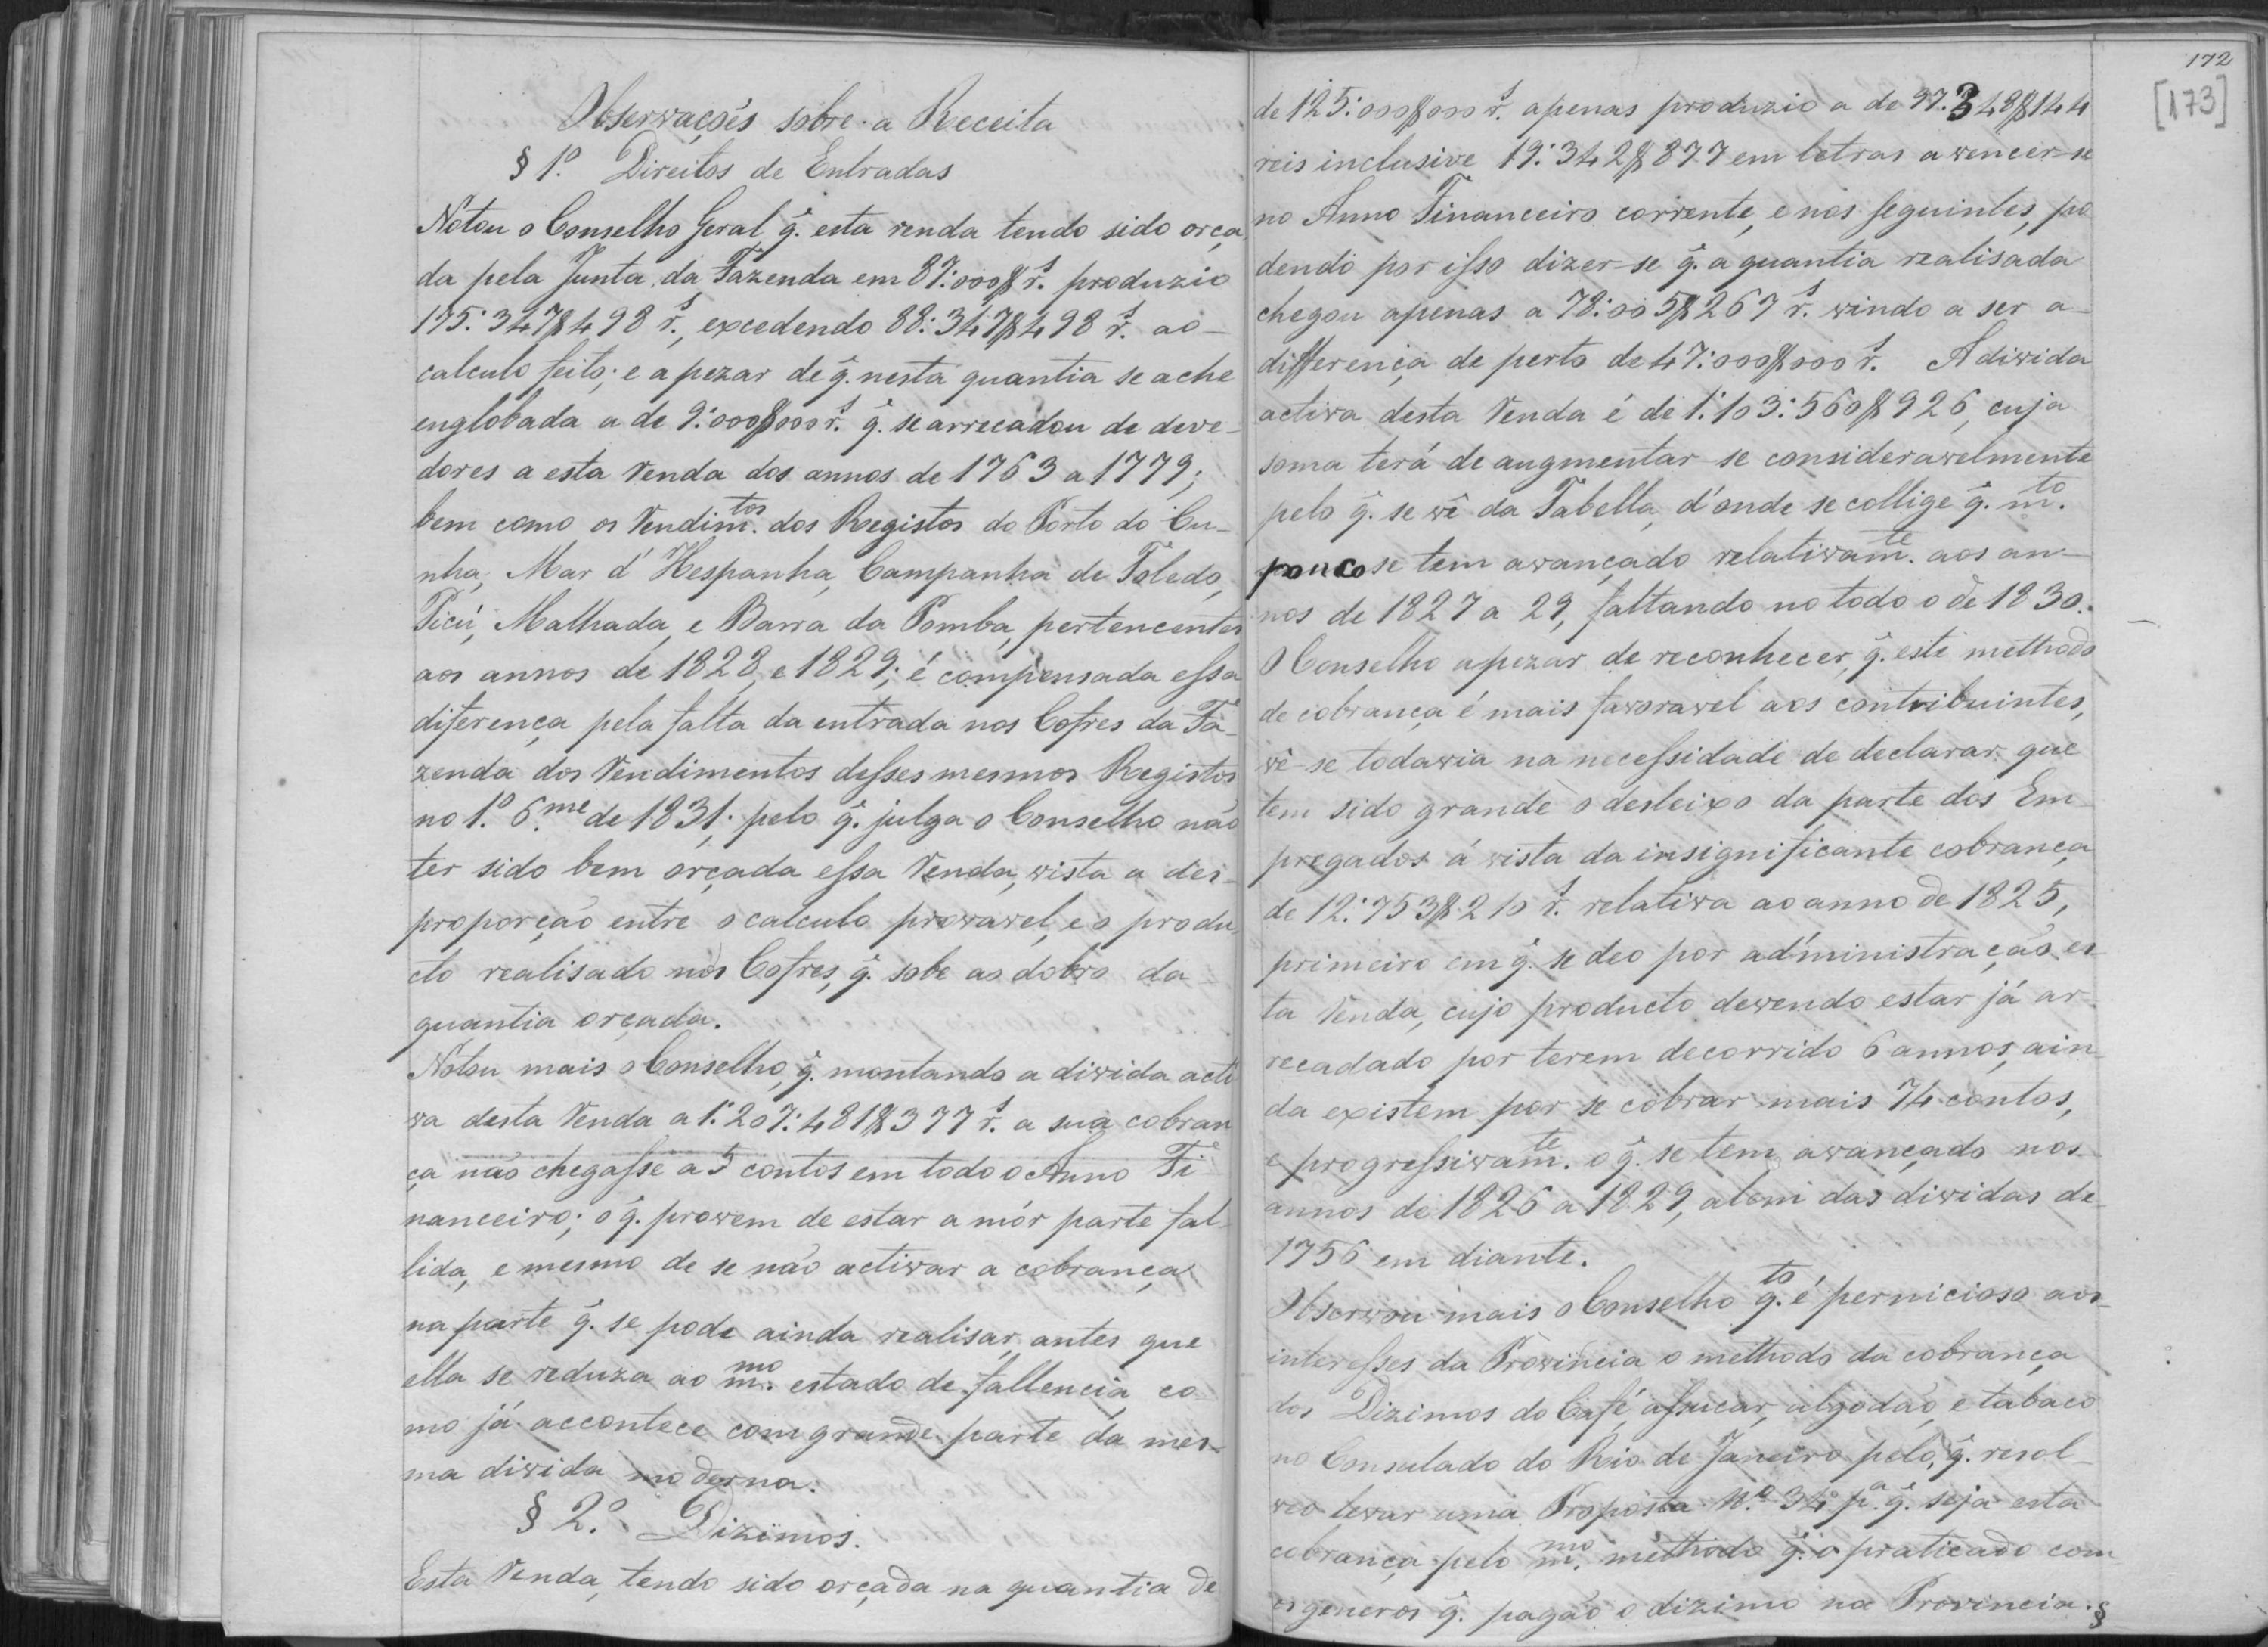 Observações sobre a Receita
§ 1.º Direitos de Entradas
Notou o Conselho Geral q̃. esta renda tendo sido orça
da pela Junta da Fazenda em 87:000$ r.s produzio
175:347$498 r.s, excedendo 88:347$498 r.s ao
calculo feito; e apezar de q̃. nesta quantia se ache
englobada a de 9:000$000 r.s q̃. se arrecadou de deve-
dores a esta Renda dos annos de 1763 a 1779;
bem como os Rendim.tos dos Registos do Porto do Cu-
nha, Mar d'Hespanha, Campanha de Toledo,
Picú, Malhada, e Barra da Pomba, pertencentes
aos annos de 1828, e 1829; é compensada essa
diferença pela falta da entrada nos Cofres da Fa-
zenda dos Rendimentos desses mesmos Registos
no 1.º 6.me de 1831; pelo q̃. julga o Conselho não
ter sido bem orçada essa Renda, vista a des-
proporção entre o calculo provavel, e o produ
cto realisado nos Cofres, q̃. sobe ao dobro da
quantia orçada.
Notou mais o Conselho, q̃. montando a divida acti
va desta Renda a 1:207:481$377 r.s a sua cobran
ça não chegasse a 5 contos em todo o Anno Fi
nanceiro; o q̃. provem de estar a mór parte fal-
lida, e mesmo de se não activar a cobrança
na parte q̃. se pode ainda realisar, antes que
ella se reduza ao m.mo estado de fallencia, co
mo já accontece com grande parte da mes-
ma divida moderna.
§ 2.º Dizimos.
Esta Renda, tendo sido orçada na quantia de
172
[173]
de 125:000$000 r.s apenas produzio a de 97:348$144
reis inclusive 19:342$877 em letras a vencer-se
no Anno Financeiro corrente, e nos seguintes, po
dendo por isso dizer-se q̃. a quantia realisada
chegou apenas a 78:005$267 r.s vindo a ser a
differença de perto de 47:000$000 r.s A divida
activa desta Renda é de 1:103:560$926, cuja
soma terá de augmentar-se consideravelmente
pelo q̃. se vê da Tabella, d'onde se collige q̃. m.to
pouco se tem avançado relativam.te aos an-
nos de 1827 a 29, faltando no todo o de 1830.
O Conselho apezar de reconhecer, q̃. este methodo
de cobrança é mais favoravel aos contribuintes,
vê-se todavia na necessidade de declarar que
tem sido grande o desleixo da parte dos Em
pregados á vista da insignificante cobrança
de 12:753$210 r.s relativa ao anno de 1825,
primeiro em q̃. se deo por administração es-
ta Renda, cujo producto devendo estar já ar-
recadado por terem decorrido 6 annos, ain
da existem por se cobrar mais 74 contos,
e progressivam.te o q̃. se tem avançado nos
annos de 1826 a 1829, alem das dividas de
1756 em diante.
Observou mais o Conselho q.to é pernicioso aos
interesses da Provincia o methodo da cobrança
dos Dizimos do Café, assucar, algodão, e tabaco
no Consulado do Rio de Janeiro pelo q̃. resol-
veo levar uma Proposta N.º 34 p.a q̃. seja esta
cobrança pelo m.mo methodo q̃. o praticado com
os generos q̃. pagão o dizimo na Provincia. §